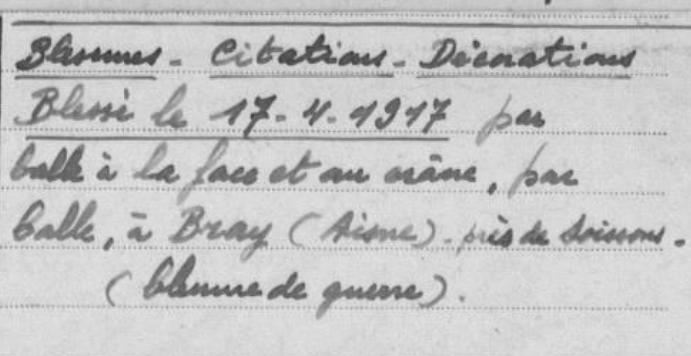 Blessures - Citations - Décorations
Blessé le 17-4-1917 par
balle à la face et au crâne, par
balle, à Bray (Aisne) - près de Soissons.
(blessure de guerre).